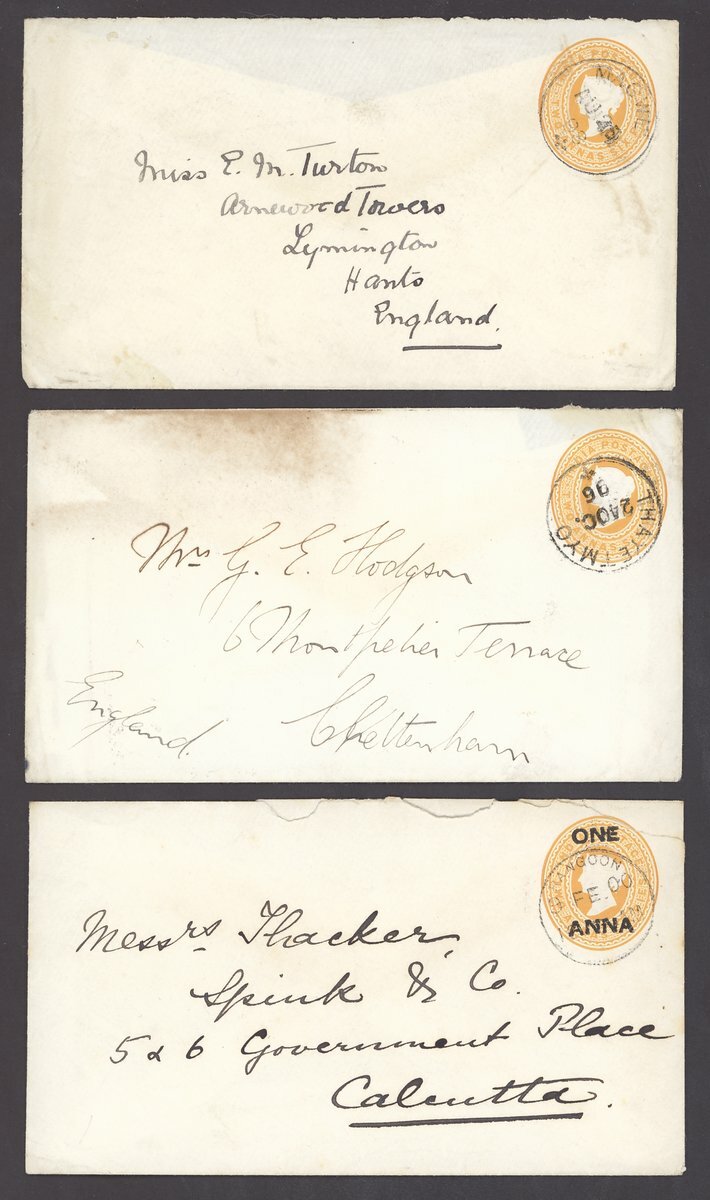 Miss E. M. Turton
Arnewood Towers
Lymington
Hants
England.
THAYETMYO
24 OC.
96
Mrs G. E. Hodgson
6 Montpelier Terrace
Cheltenham
England.
ONE
RANGOON
FE 00
ANNA
Messrs Thacker,
Spink & Co.
5 & 6 Government Place
Calcutta.